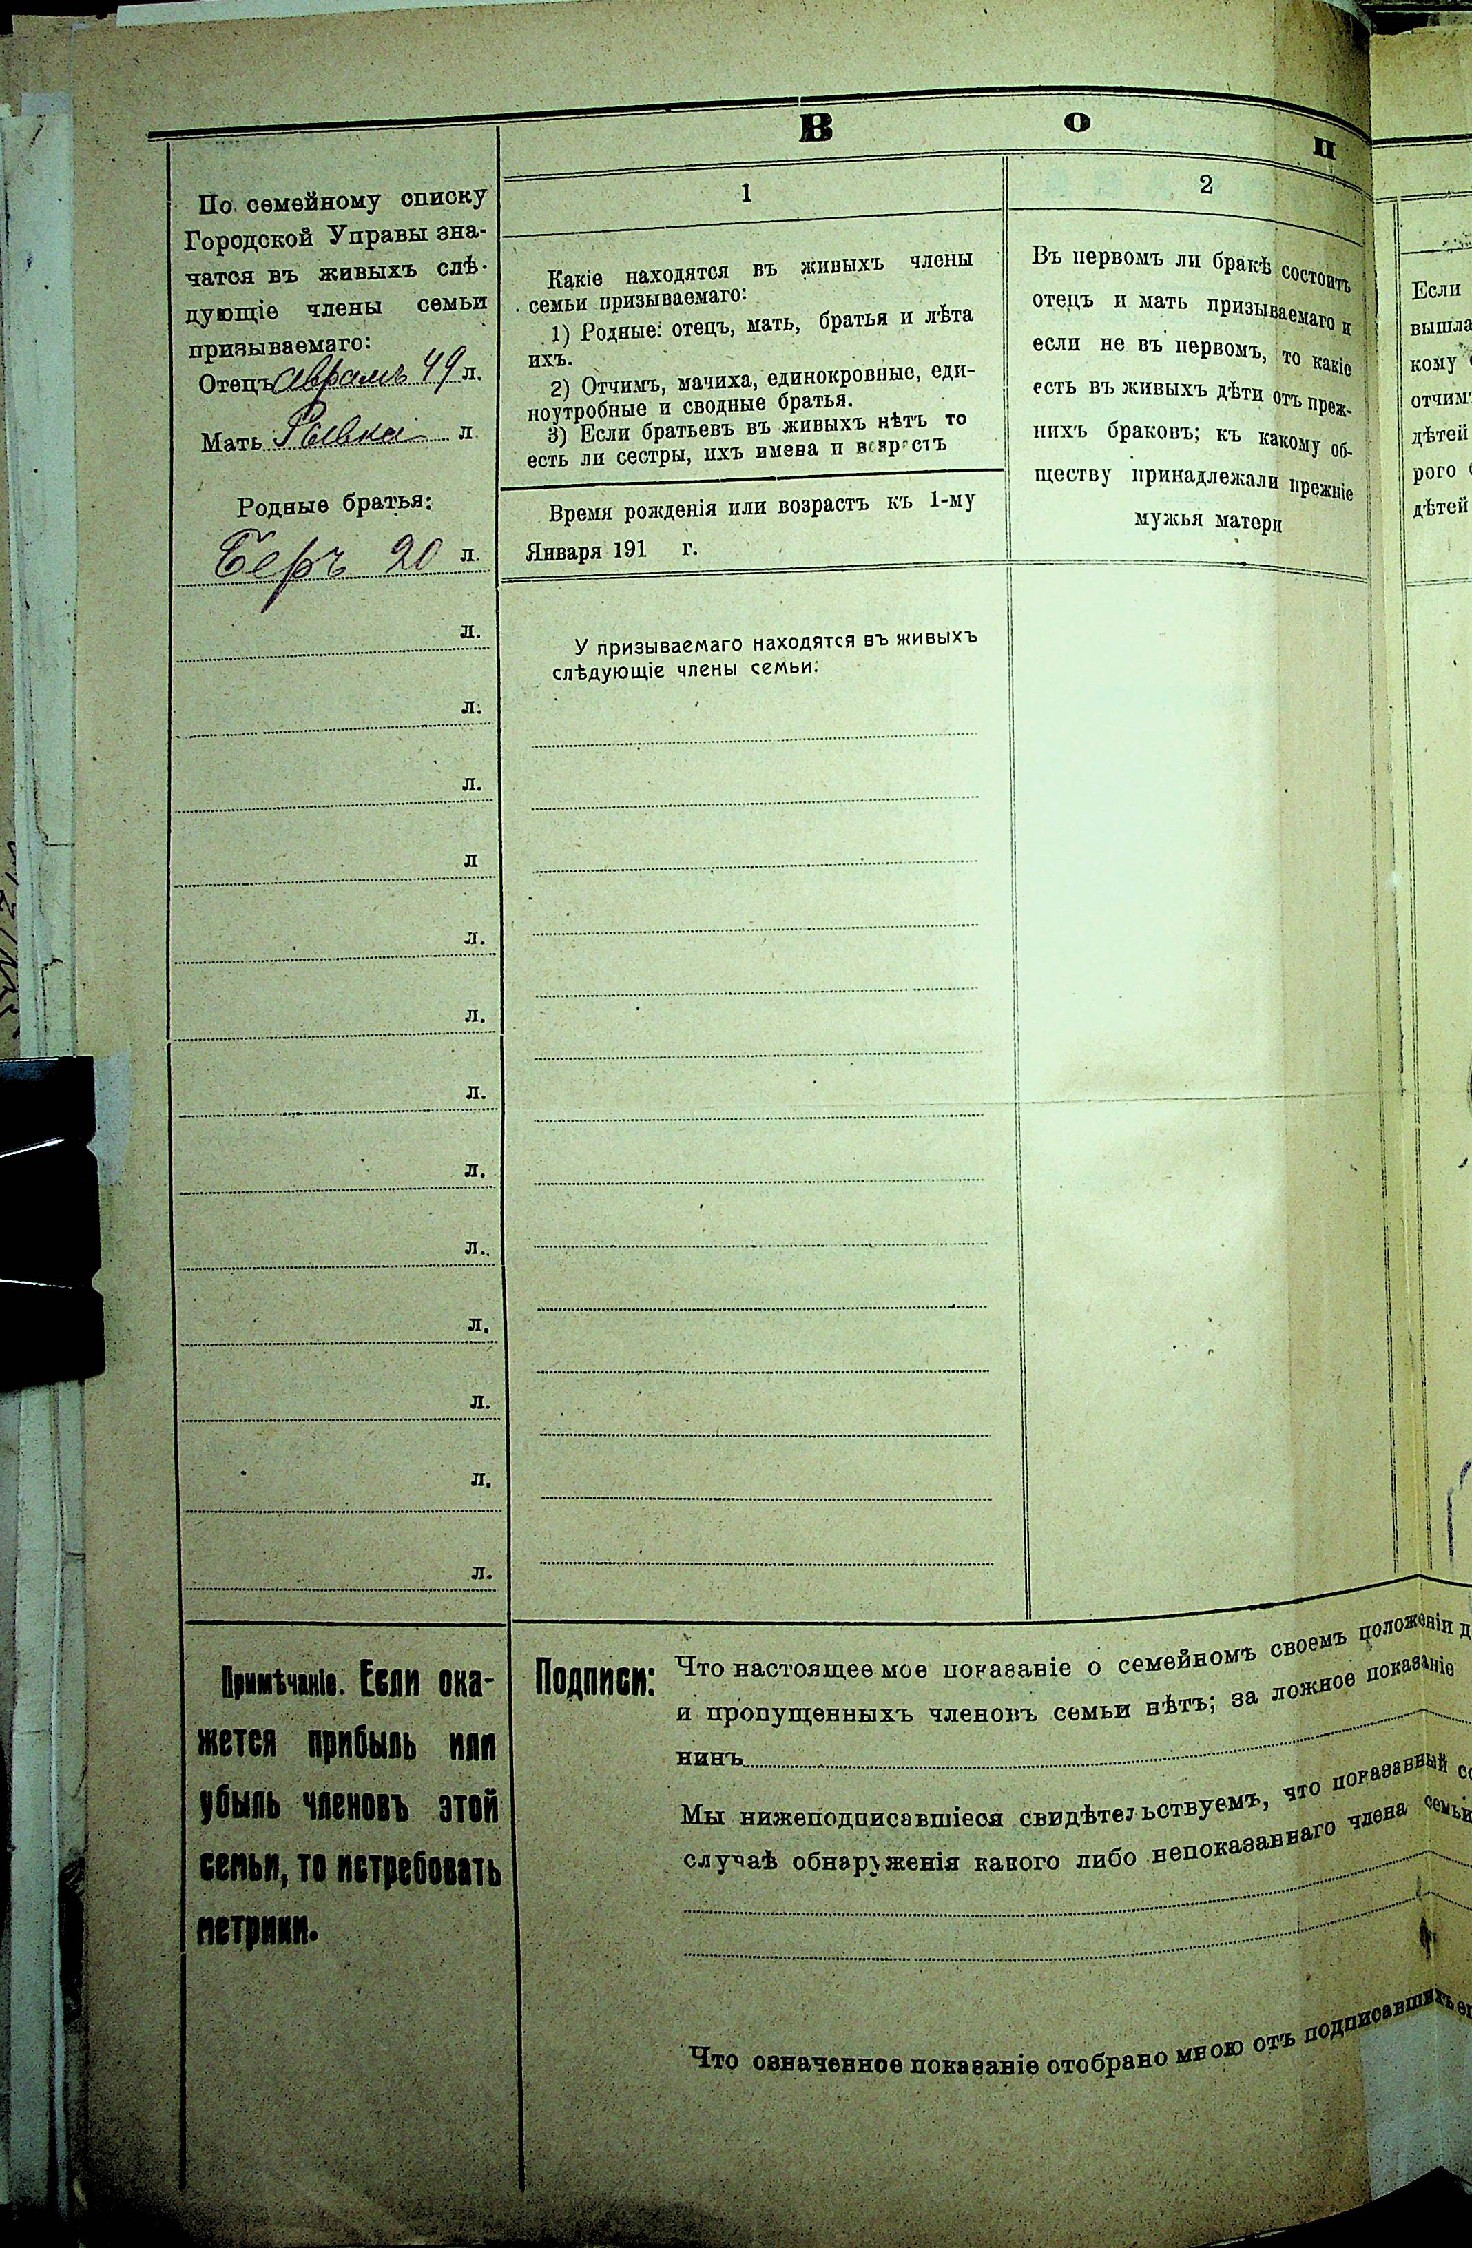 В о п
По семейному списку
Городской Управы зна-
чатся въ живыхъ слѣ-
дующіе члены семьи
призываемаго:
Отецъ Аврамъ 49 л.
Мать Ривка л
Родные братья:
Беръ 20 л.
л.
л.
л.
л
л.
л.
л.
л.
л.
л.
л.
л.
л.
1
Какіе находятся въ живыхъ члены
семьи призываемаго:
1) Родные: отецъ, мать, братья и лѣта
ихъ.
2) Отчимъ, мачиха, единокровные, еди-
ноутробные и сводные братья.
3) Если братьевъ въ живыхъ нѣтъ то
есть ли сестры, ихъ имена и возрастъ
Время рожденія или возрастъ къ 1-му
Января 191 г.
У призываемаго находятся въ живыхъ
слѣдующіе члены семьи:
2
Въ первомъ ли бракѣ состоитъ
отецъ и мать призываемаго и
если не въ первомъ, то какіе
есть въ живыхъ дѣти отъ преж-
нихъ браковъ; къ какому об-
ществу принадлежали прежніе
мужья матери
Если
вышла
кому
отчим
дѣтей
рого
дѣтей
Примѣчаніе. Если ока-
жется прибыль или
убыль членовъ этой
семьи, то истребовать
метрики.
Подписи: Что настоящее мое показаніе о семейномъ своемъ положеніи д
и пропущенныхъ членовъ семьи нѣтъ; за ложное показаніе
нинъ
Мы нижеподписавшіеся свидѣтельствуемъ, что показанный со
случаѣ обнаруженія какого либо непоказаннаго члена семьи
Что означенное показаніе отобрано мною отъ подписавшихъ ег